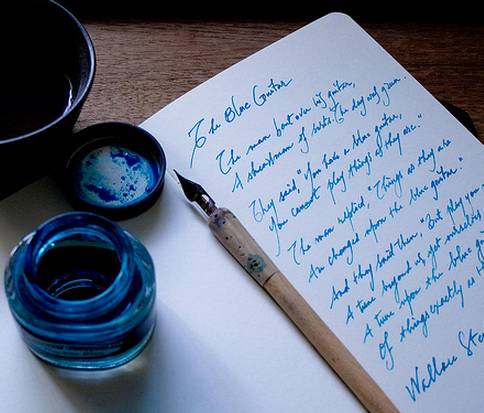 The Blue Guitar
The man bent over his guitar,
A shearsman of sorts. The day was green.
They said, "You have a blue guitar,
You cannot play things as they are."
The man replied, "Things as they are
Are changed upon the blue guitar."
And they said then, "But play, you
A tune beyond us, yet ourselves,
A tune upon the blue
Of things exactly as
Wallace